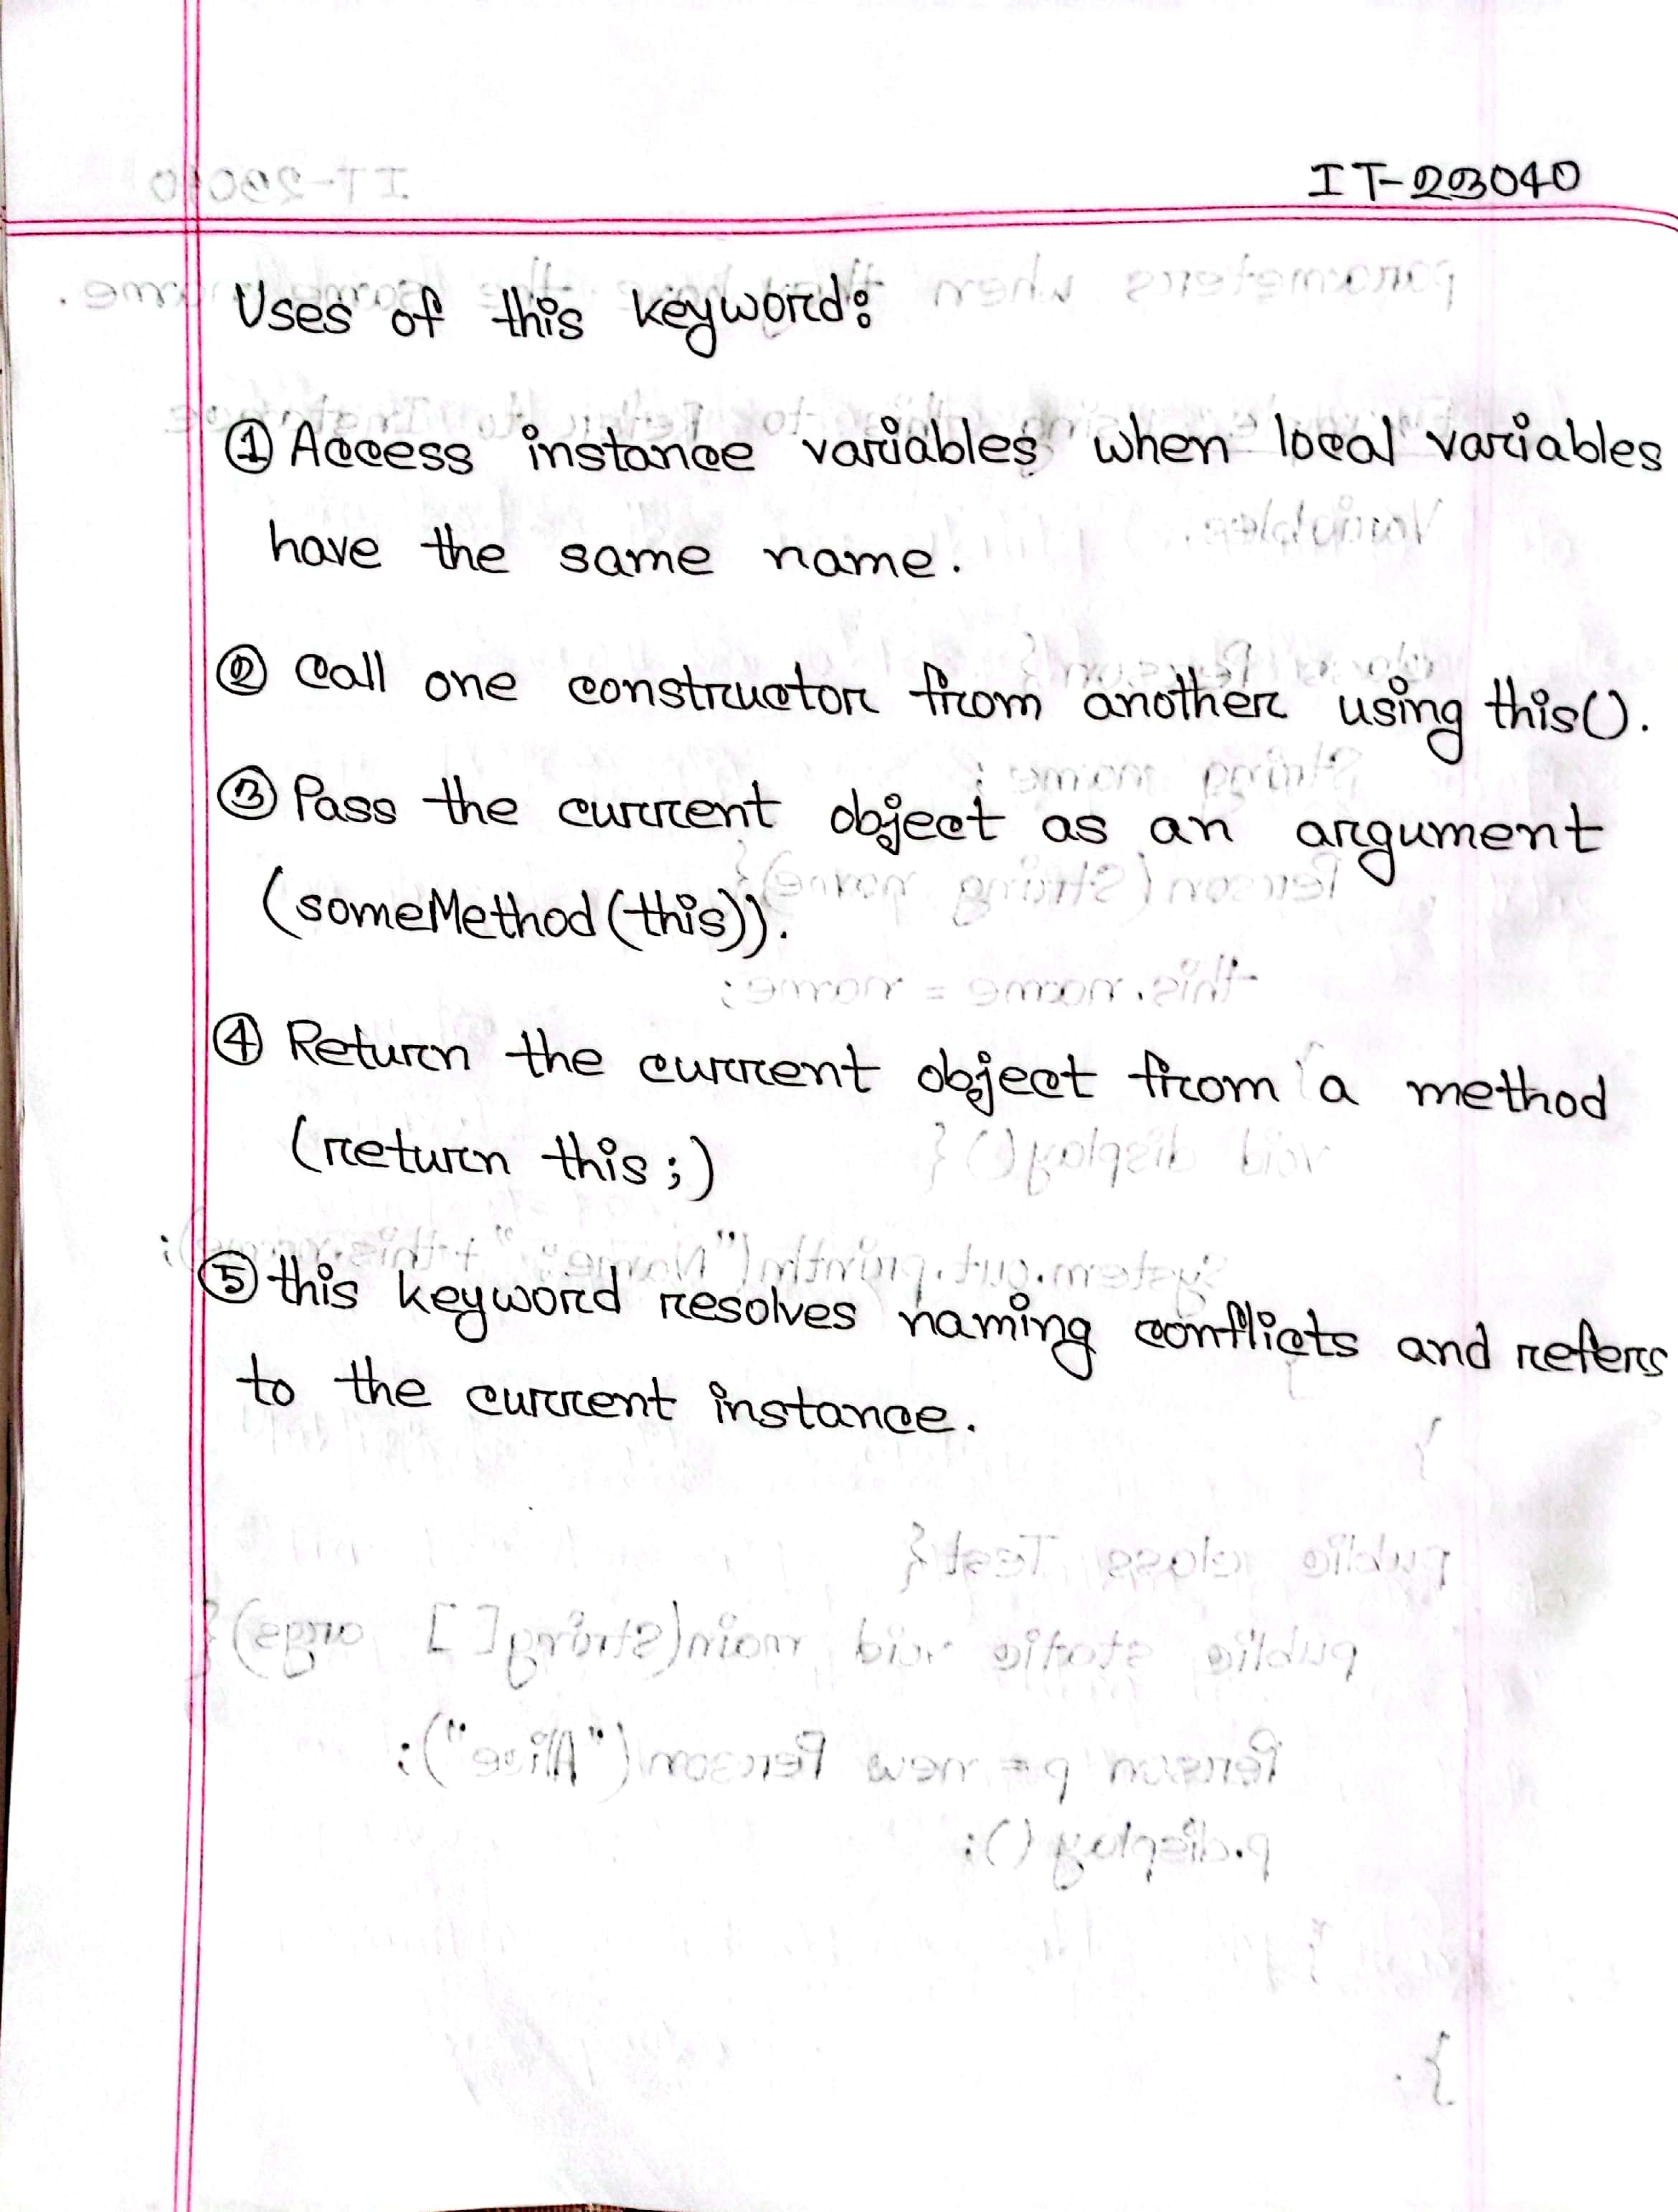 IT-23040
Uses of this keyword:
① Access instance variables when local variables
have the same name.
② Call one constructor from another using this().
③ Pass the current object as an argument
(someMethod(this)).
④ Return the current object from a method
(return this;)
⑤ this keyword resolves naming conflicts and refers
to the current instance.